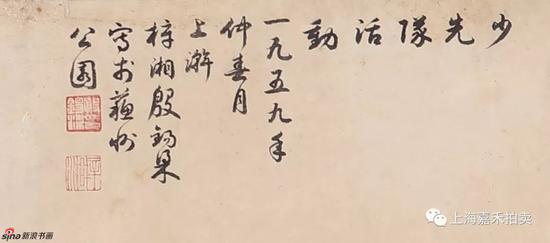 少先隊活動
一九五九年
仲春月
上澣
梓湘殷錫梁
寫於蘇州
公園
sina新浪书画
上海嘉禾拍卖